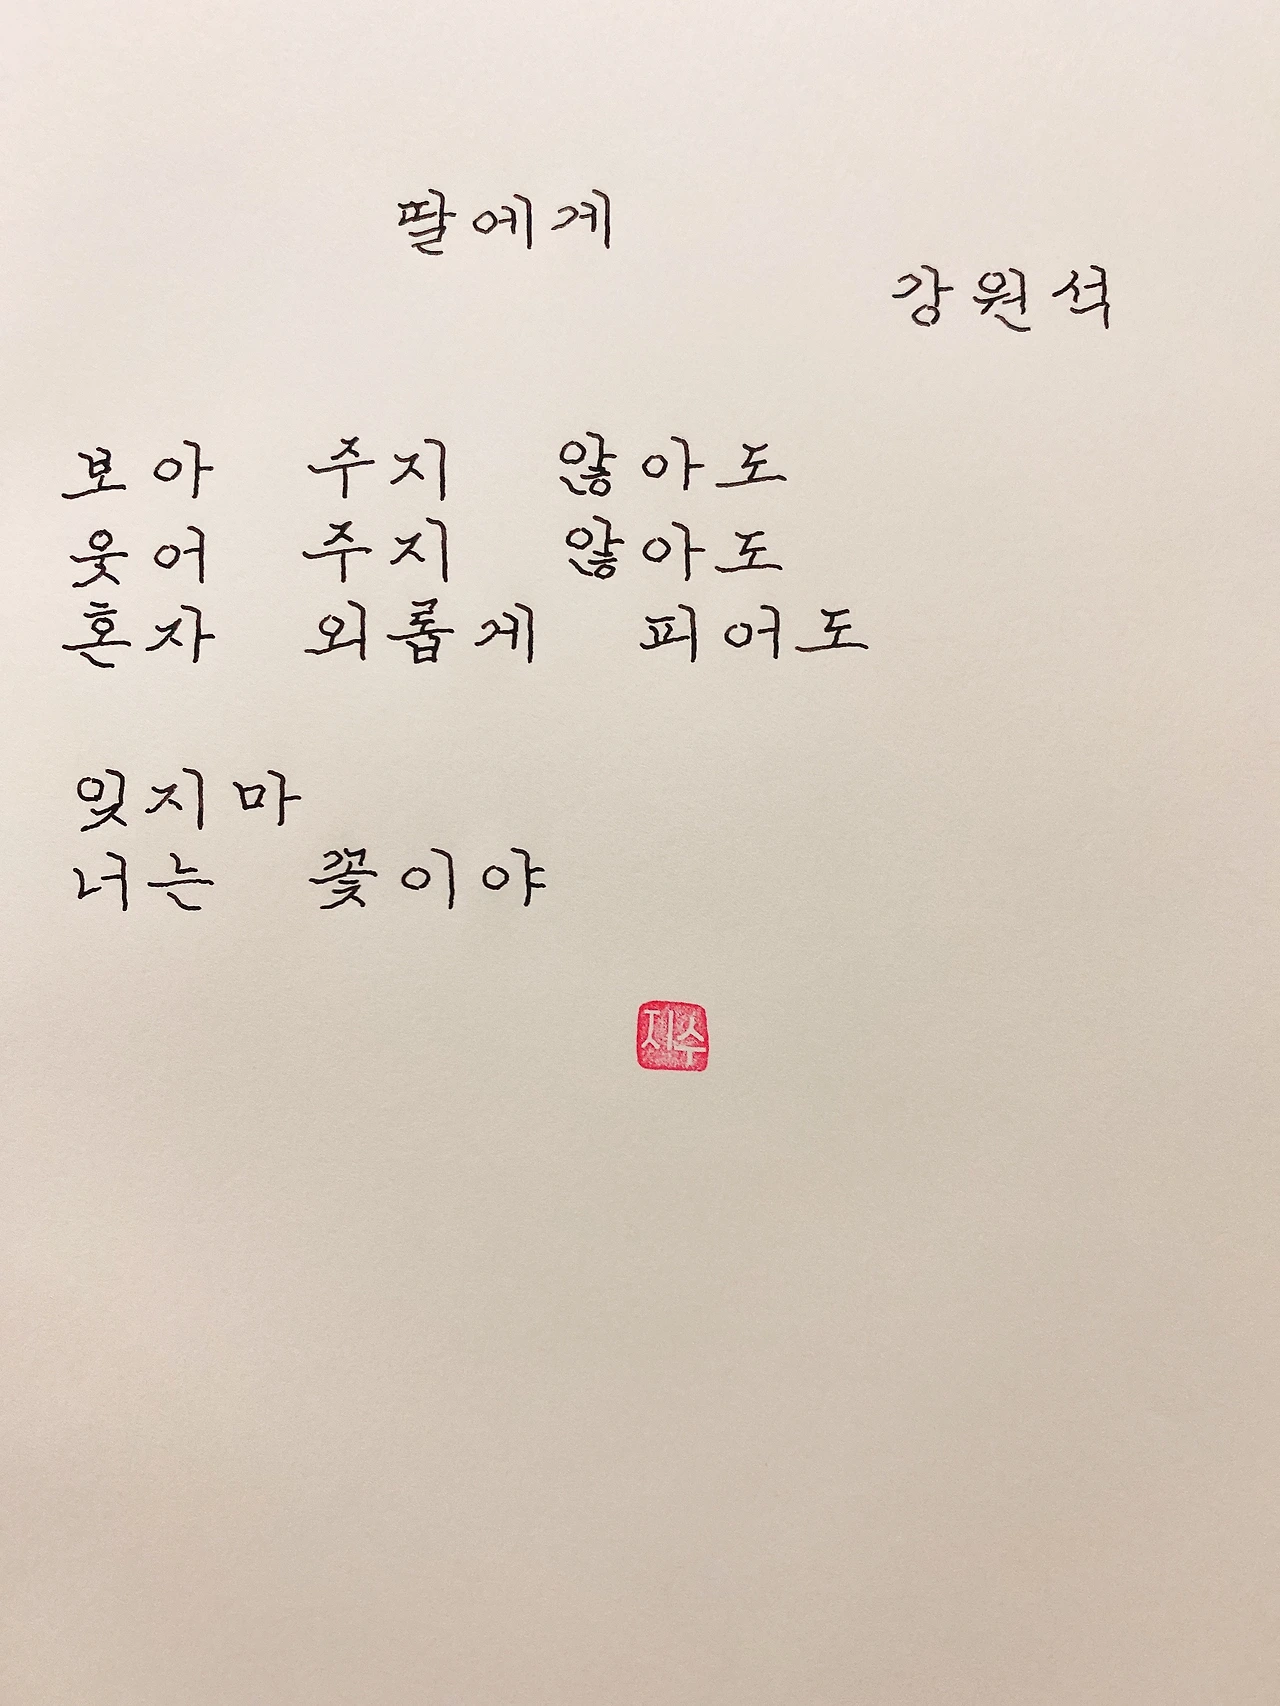 딸에게
강원석
보아 주지 않아도
웃어 주지 않아도
혼자 외롭게 피어도
잊지마
너는 꽃이야
지수